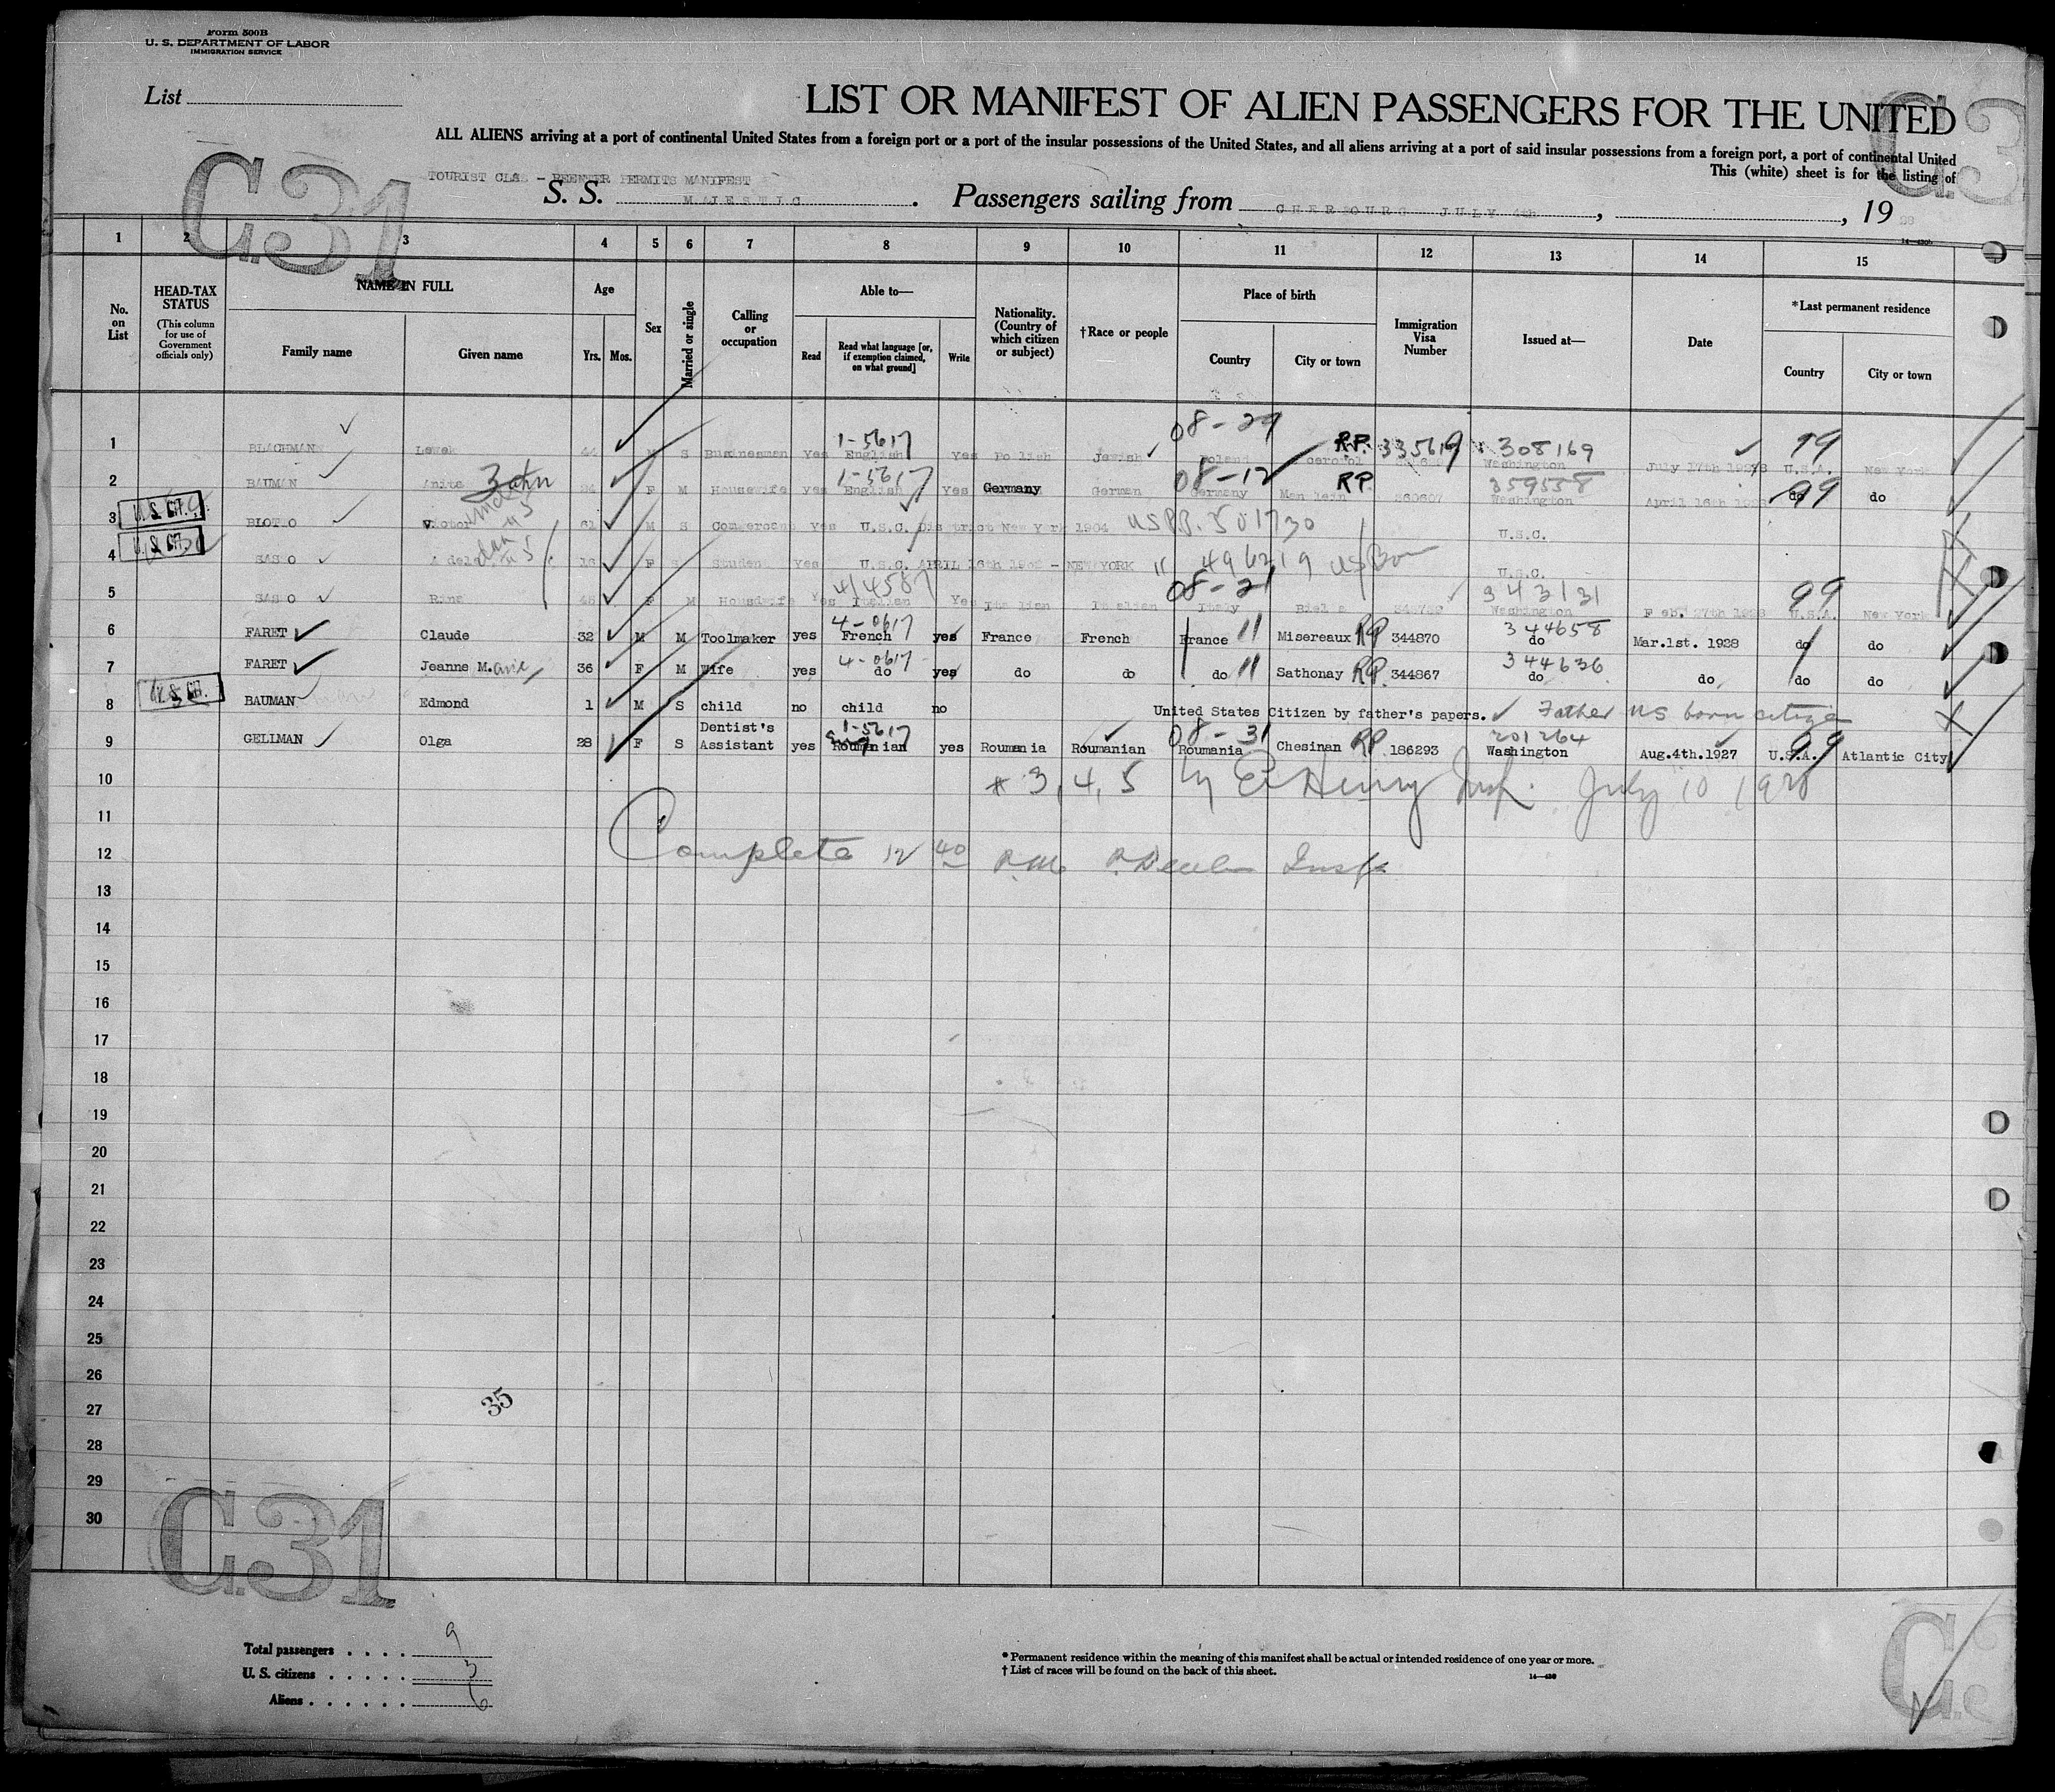 Form 500B
U. S. DEPARTMENT OF LABOR
IMMIGRATION SERVICE
List
LIST OR MANIFEST OF ALIEN PASSENGERS FOR THE UNITED
ALL ALIENS arriving at a port of continental United States from a foreign port or a port of the insular possessions of the United States, and all aliens arriving at a port of said insular possessions from a foreign port, a port of continental United
This (white) sheet is for the listing of
C.31
TOURIST CLASS - REENTER PERMITS MANIFEST
S. S. MAJESTIC. Passengers sailing from CHERBOURG JULY 4th, , 19 28
1 2 3 4 5 6 7 8 9 10 11 12 13 14 15
No. on List
HEAD-TAX STATUS (This column for use of Government officials only)
NAME IN FULL Family name Given name
Age Yrs. Mos.
Sex
Married or single
Calling or occupation
Able to— Read Read what language [or, if exemption claimed, on what ground] Write
Nationality. (Country of which citizen or subject)
†Race or people
Place of birth Country City or town
Immigration Visa Number
Issued at—
Date
*Last permanent residence Country City or town
1 BLACHMAN 44 M S Businessman Yes 1-5617 English Yes Polish Jewish 08-29 Poland RP. 335619 308169 Washington July 17th 1928 99 U.S.A. New York
2 BAUMAN Anita F M Housewife Yes 1-5617 English Yes Germany German 08-12 Germany RP 260607 359558 Washington April 16th 99 do do
3 U.S. CIT. Victor 61 M S Yes U.S.C. District New York 1904 U.S.C.
4 U.S. CIT. SASSO Adele 16 F S Student Yes U.S.C. APRIL 16th - NEW YORK 496219 U.S.C.
5 SASSO Rina 45 F M Housewife Yes 414587 Italian Yes Italian Italian 08-21 Italy Biella 343131 Washington Feb. 27th 1928 99 U.S.A. New York
6 FARET Claude 32 M M Toolmaker yes 4-0617 French yes France French France 11 Misereaux RP 344870 344658 do Mar.1st. 1928 do do
7 FARET Jeanne M.arie 36 F M Wife yes 4-0617 do yes do do do 11 Sathonay RP. 344867 344636 do do do do
8 U.S. CIT. BAUMAN Edmond 1 M S child no child no United States Citizen by father's papers. Father US born citizen
9 GELLMAN Olga 28 F S Dentist's Assistant yes 1-5617 Roumanian yes Roumania Roumanian 08-31 Roumania Chesinan RP. 186293 201264 Washington Aug.4th.1927 99 U.S.A. Atlantic City
10 * 3, 4, 5 by E Henry Insp. July 10 1928
11
12 Complete 12 40 P.M. Insp
13
14
15
16
17
18
19
20
21
22
23
24
25
26
27 35
28
29
30
C.31
Total passengers . . . . 9
U. S. citizens . . . . . 3
Aliens . . . . . . 6
* Permanent residence within the meaning of this manifest shall be actual or intended residence of one year or more.
† List of races will be found on the back of this sheet.